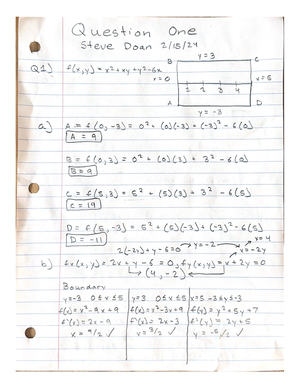 Question One
Steve Doan 2/15/24
Q1) f(x,y) = x² + xy + y² - 6x
B y = 3 C
x = 0 1 2 3 4 x = 5
A y = -3 D
a) A = f(0,-3) = 0² + (0)(-3) + (-3)² - 6(0)
A = 9
B = f(0,3) = 0² + (0)(3) + 3² - 6(0)
B = 9
C = f(5,3) = 5² + (5)(3) + 3² - 6(5)
C = 19
D = f(5,-3) = 5² + (5)(-3) + (-3)² - 6(5)
D = -11
2(-2y) + y - 6 = 0 → y = -2 x = 4
b) fx(x,y) = 2x + y - 6 = 0, fy(x,y) = x + 2y = 0 x = -2y
(4, -2)
Boundary
y = -3 0 ≤ x ≤ 5 y = 3 0 ≤ x ≤ 5 x = 5 -3 ≤ y ≤ 3
f(x) = x² - 9x + 9 f(x) = x² - 3x + 9 f(x) = y² + 5y + 7
f'(x) = 2x - 9 f'(x) = 2x - 3 f'(y) = 2y + 5
x = 9/2 ✓ x = 3/2 ✓ y = -5/2 ✓